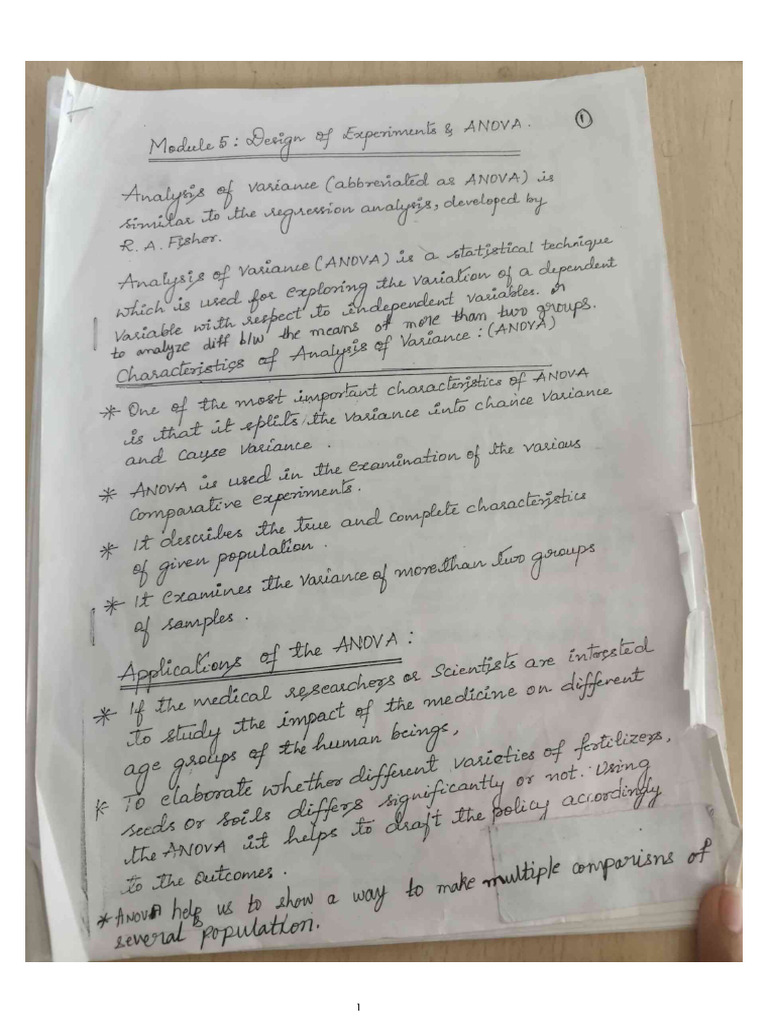 ①
Module 5 : Design of Experiments & ANOVA .
Analysis of Variance (abbreviated as ANOVA) is
similar to the regression analysis, developed by
R. A. Fisher.
Analysis of Variance (ANOVA) is a statistical technique
which is used for exploring the variation of a dependent
variable with respect to independent variables. or
to analyze diff b/w the means of more than two groups.
Characteristics of Analysis of Variance : (ANOVA)
* One of the most important characteristics of ANOVA
is that it splits the variance into chance variance
and cause variance .
* ANOVA is used in the examination of the various
comparative experiments.
* It describes the true and complete characteristics
of given population .
* It examines the variance of more than two groups
of samples .
Applications of the ANOVA :
* If the medical researchers or Scientists are intersted
to study the impact of the medicine on different
age groups of the human beings,
* To elaborate whether different varieties of fertilizers,
seeds or soils differs significantly or not. Using
the ANOVA it helps to draft the policy accordingly
to the outcomes .
* ANOVA help us to show a way to make multiple comparisns of
several population.
1